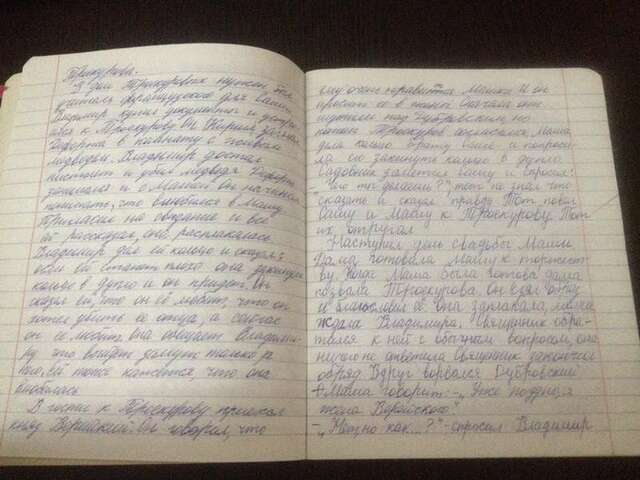 Троекурова.
В дом Троекуровых нужен был
учитель французского для Саши.
Владимир купил документы и устро-
ился к Троекурову. Он Кирилл загнал
Дефоржа в комнату с
медведем. Владимир достал
пистолет и убил медведя. Дефорж
занимался и с Машей он начинал
понимать, что влюбился в Машу
Пригласил на свидание и все
ей рассказал, она расплакалась
Владимир дал ей кольцо и сказал:
если ей станет плохо она закинула
кольцо в дупло и он придет. Он
сказал ей, что он её любит, что он
хотел убить её отца, а сейчас
он её любит, она обещает Владими-
ру что выйдет замуж только за
него, ей тоже кажется, что она
влюбилась
В гости к Троекурову приехал
князь Верейский. Он говорил, что
ему очень нравится Маша. И он
просит её в жены. Сначала они
шутили над Дубровским, но
потом Троекуров согласился, Маша
дала кольцо брату Саше и попроси-
ла его закинуть кольцо в дупло.
Садовник заметил Сашу и спросил:
-"Что ты делаешь?", тот не знал что
сказать и сказал правду. Тот повел
Сашу и Машу к Троекурову. Тот
их отругал.
Наступил день свадьбы Маши.
Дама готовила Машу к торжест-
ву. Когда Маша была готова дама
позвала Троекурова, он взял образ
и благословил её она заплакала, Маша
ждала Владимира. Священник обра-
тился к ней с обычным вопросом, она
ничего не ответила священник закончил
обряд. Вдруг ворвался Дубровский
Маша говорит: -"Уже поздно, я
жена Верейского"
-"Но как...?" -спросил Владимир